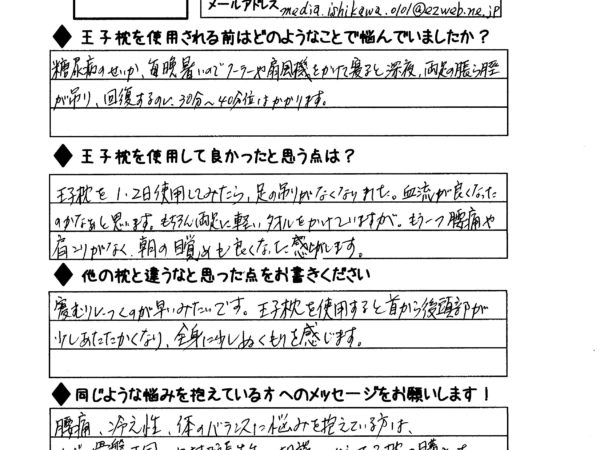 メールアドレス media.ishikawa.0101@ezweb.ne.jp
◆王子枕を使用される前はどのようなことで悩んでいましたか？
糖尿病のせいか、毎晩暑いのでクーラーや扇風機をかけて寝ると深夜、両足の脹ら脛
が吊り、回復するのに30分〜40分位はかかります。
◆王子枕を使用して良かったと思う点は？
王子枕を1・2日使用してみたら、足の吊りがなくなりました。血流が良くなった
のかなぁと思います。もちろん両足に軽いタオルをかけていますが。もう一つ腰痛や
肩こりがなく、朝の目覚めも良くなった感じがします。
◆他の枕と違うなと思った点をお書きください
寝むりにつくのが早いみたいです。王子枕を使用すると首から後頭部が
少しあたたかくなり、全身に少しぬくもりを感じます。
◆同じような悩みを抱えている方へのメッセージをお願いします！
腰痛、冷え性、体のバランスに悩みを抱えている方は、